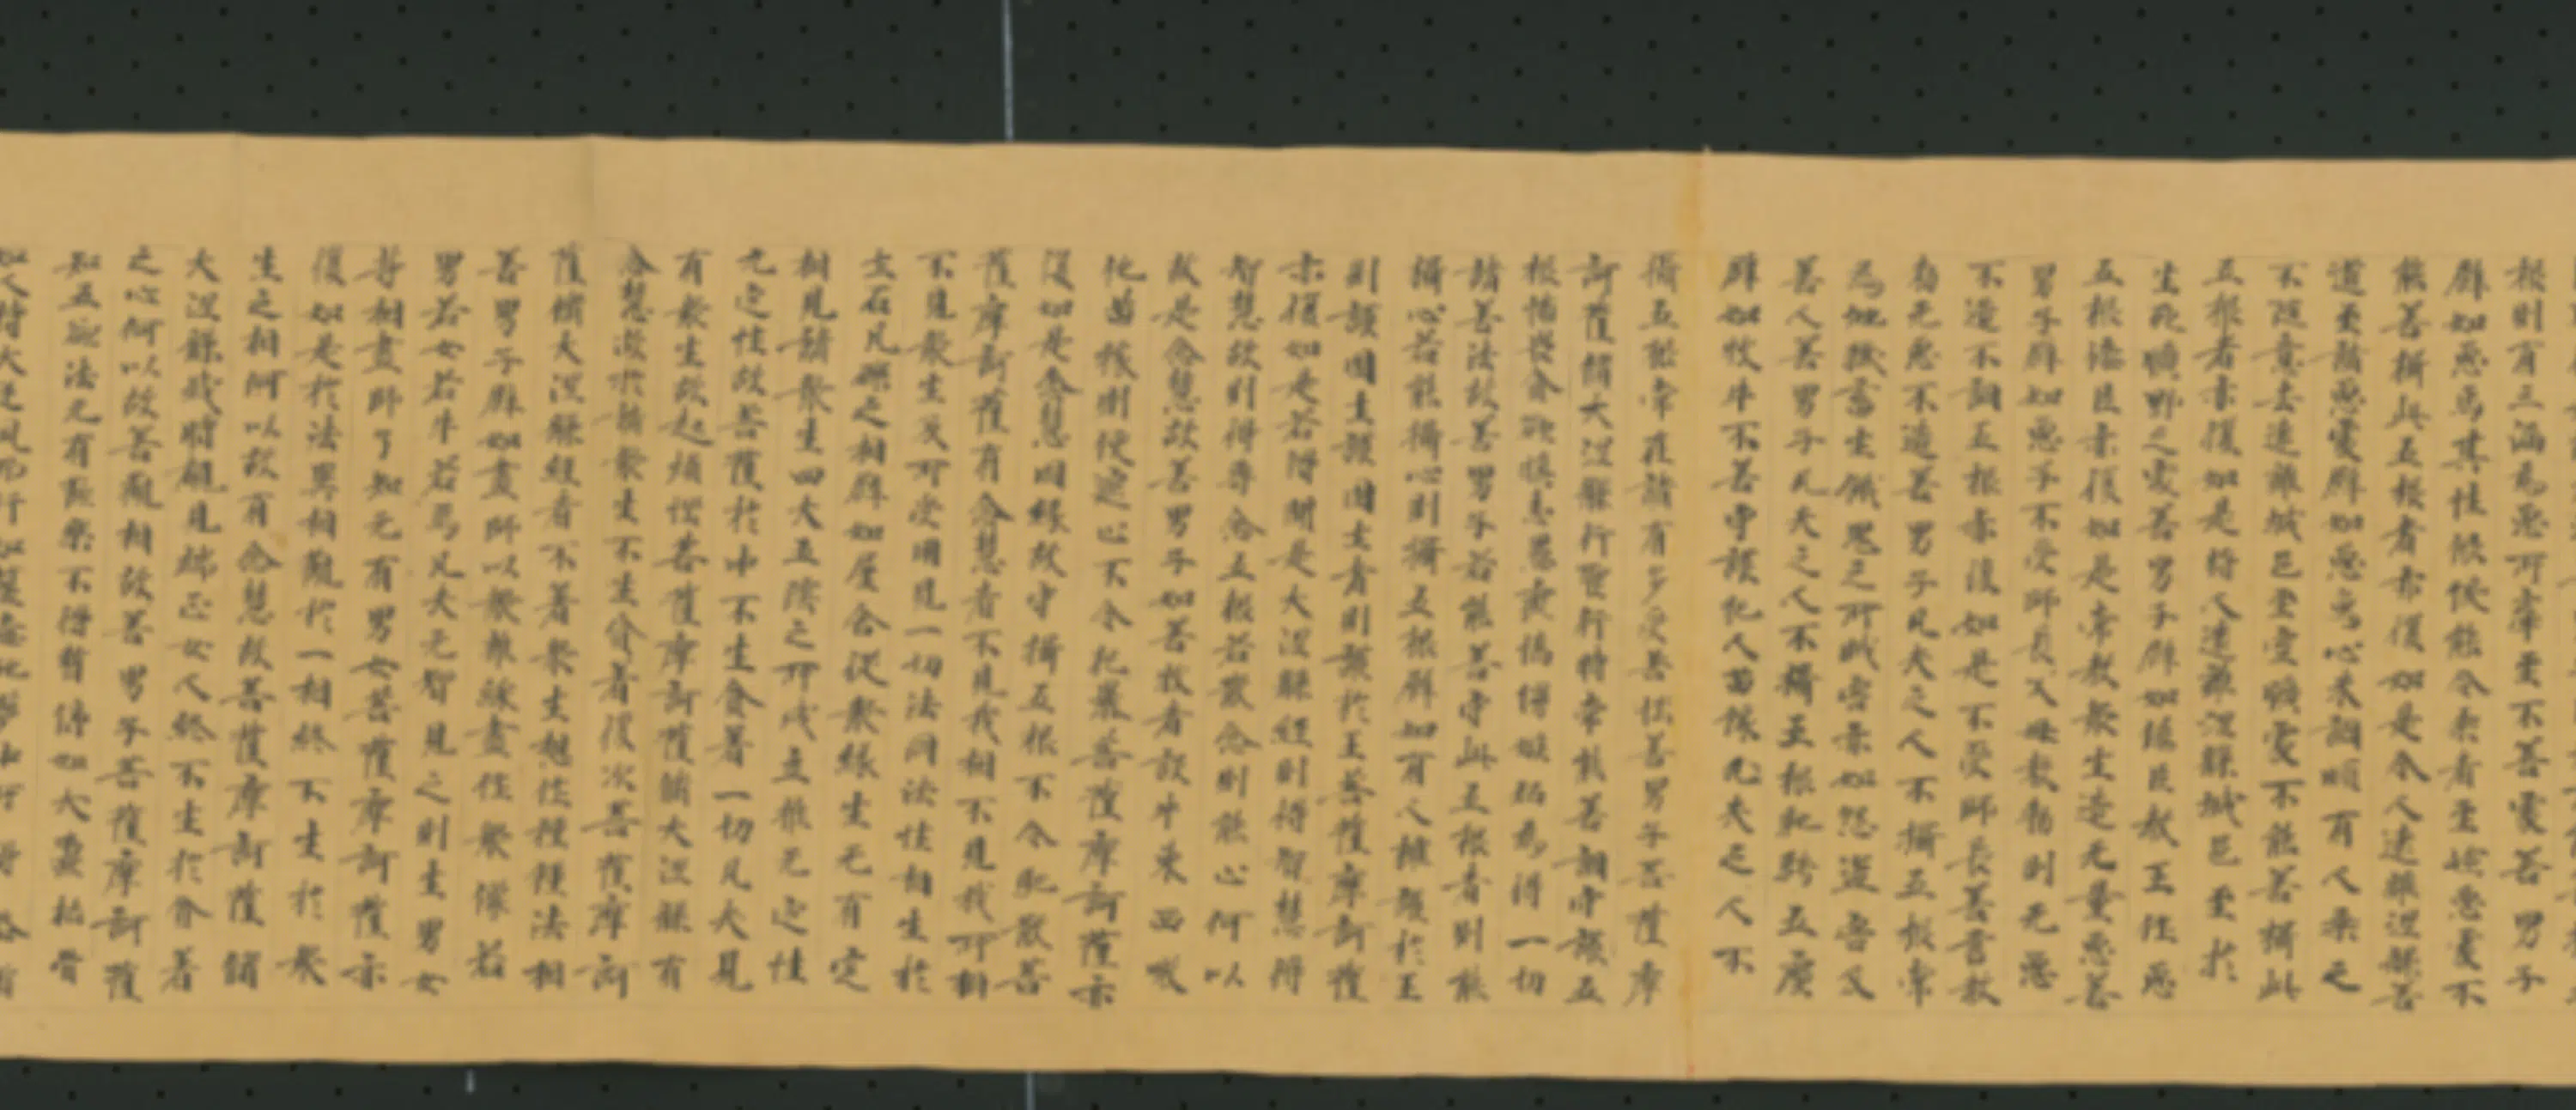 根則有三漏為惡所牽至不善處善男子
譬如惡馬其性佷悷能令乘者至嶮惡處不
能善攝此五根者亦復如是令人遠離涅槃善
道至諸惡處譬如惡象心未調順有人乘之
不隨意去遠離城邑至空曠處不能善攝此
五根者亦復如是將人遠離涅槃城邑至於
生死曠野之處善男子譬如佞臣教王作惡
五根佞臣亦復如是常教衆生造无量惡善
男子譬如惡子不受師長父母教勑則无惡
不造不調五根亦復如是不受師長善言教
勑无惡不造善男子凡夫之人不攝五根常
為地獄畜生餓鬼之所賊害亦如怨盜害及
善人善男子凡夫之人不攝五根馳騁五塵
譬如牧牛不善守護犯人苗稼凡夫之人不
攝五根常在諸有多受苦惱善男子菩薩摩
訶薩脩大涅槃行聖行時常能善調守護五
根怖畏貪欲瞋恚愚癡憍慢嫉妬為得一切
諸善法故善男子若能善守此五根者則能
攝心若能攝心則攝五根譬如有人擁護於王
則護國土護國土者則護於王菩薩摩訶薩
亦復如是若得聞是大涅槃經則得智慧得
智慧故則得專念五根若散念則能心何以
故是念慧故善男子如善牧者設牛東西噉
他苗稼則便遮止不令犯暴菩薩摩訶薩亦
復如是念慧因緣故守攝五根不令馳散菩
薩摩訶薩有念慧者不見我相不見我所相
不見衆生及所受用見一切法同法性相生於
土石瓦礫之相譬如屋舍從衆緣生无有定
相見諸衆生四大五陰之所成立推无定性
无定性故菩薩於中不生貪著一切凡夫見
有衆生故起煩惱菩薩摩訶薩脩大涅槃有
念慧故於諸衆生不生貪著復次菩薩摩訶
薩脩大涅槃經者不著衆生想作種種法相
善男子譬如畫師以衆雜綵畫作衆像若
男若女若牛若馬凡夫无智見之則生男女
等相畫師了知无有男女菩薩摩訶薩亦
復如是於法異相觀於一相終不生於衆
生之相何以故有念慧故菩薩摩訶薩脩
大涅槃或時覩見端正女人終不生於貪著
之心何以故善觀相故善男子菩薩摩訶薩
知五欲法无有歡樂不得暫停如犬齧枯骨